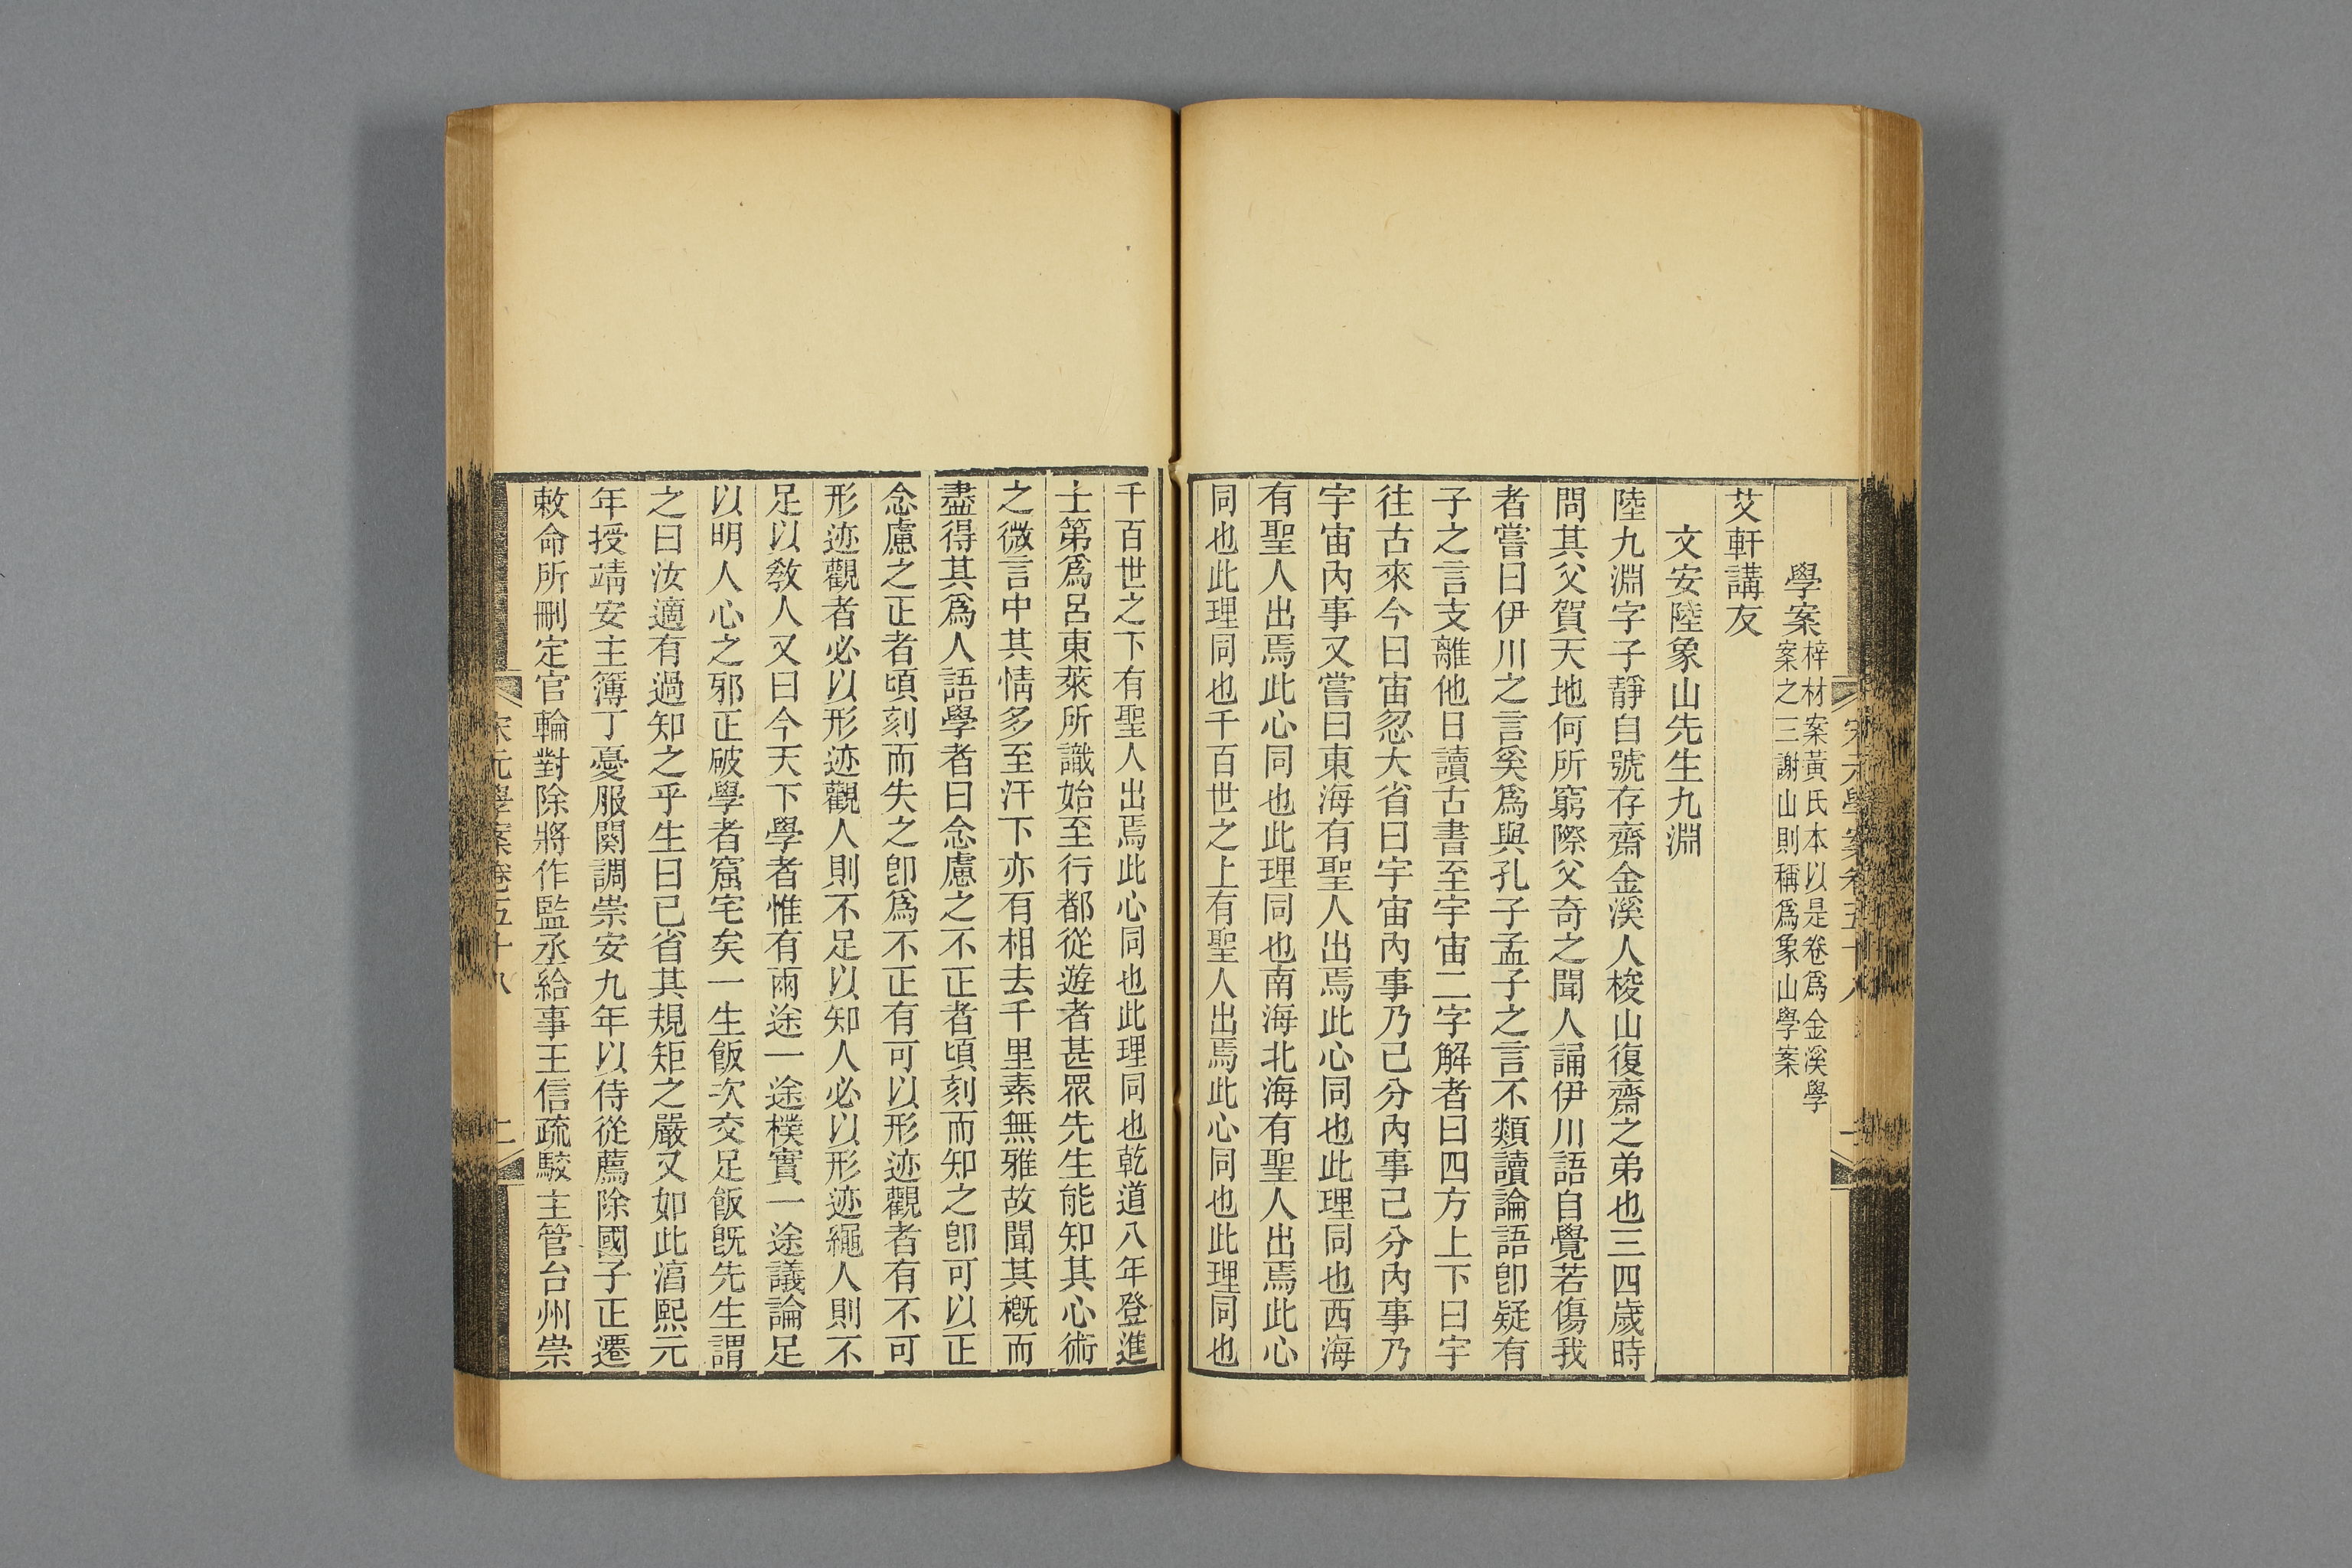 學案梓材案黃氏本以是卷爲金溪學
案之三謝山則稱爲象山學案
艾軒講友
文安陸象山先生九淵
陸九淵字子靜自號存齋金溪人梭山復齋之弟也三四歲時
問其父賀天地何所窮際父奇之聞人誦伊川語自覺若傷我
者嘗曰伊川之言奚爲與孔子孟子之言不類讀論語卽疑有
子之言支離他日讀古書至宇宙二字解者曰四方上下曰宇
往古來今曰宙忽大省曰宇宙內事乃己分內事己分內事乃
宇宙內事又嘗曰東海有聖人出焉此心同也此理同也西海
有聖人出焉此心同也此理同也南海北海有聖人出焉此心
同也此理同也千百世之上有聖人出焉此心同也此理同也
千百世之下有聖人出焉此心同也此理同也乾道八年登進
士第爲呂東萊所識始至行都從遊者甚眾先生能知其心術
之微言中其情多至汗下亦有相去千里素無雅故聞其槪而
盡得其爲人語學者曰念慮之不正者頃刻而知之卽可以正
念慮之正者頃刻而失之卽爲不正有可以形迹觀者有不可
形迹觀者必以形迹觀人則不足以知人必以形迹繩人則不
足以敎人又曰今天下學者惟有兩途一途樸實一途議論足
以明人心之邪正破學者窟宅矣一生飯次交足飯旣先生謂
之曰汝適有過知之乎生曰已省其規矩之嚴又如此淳熙元
年授靖安主簿丁憂服闋調崇安九年以侍從薦除國子正遷
敕命所刪定官輪對除將作監丞給事王信疏駮主管台州崇
宋元學案卷五十八
二